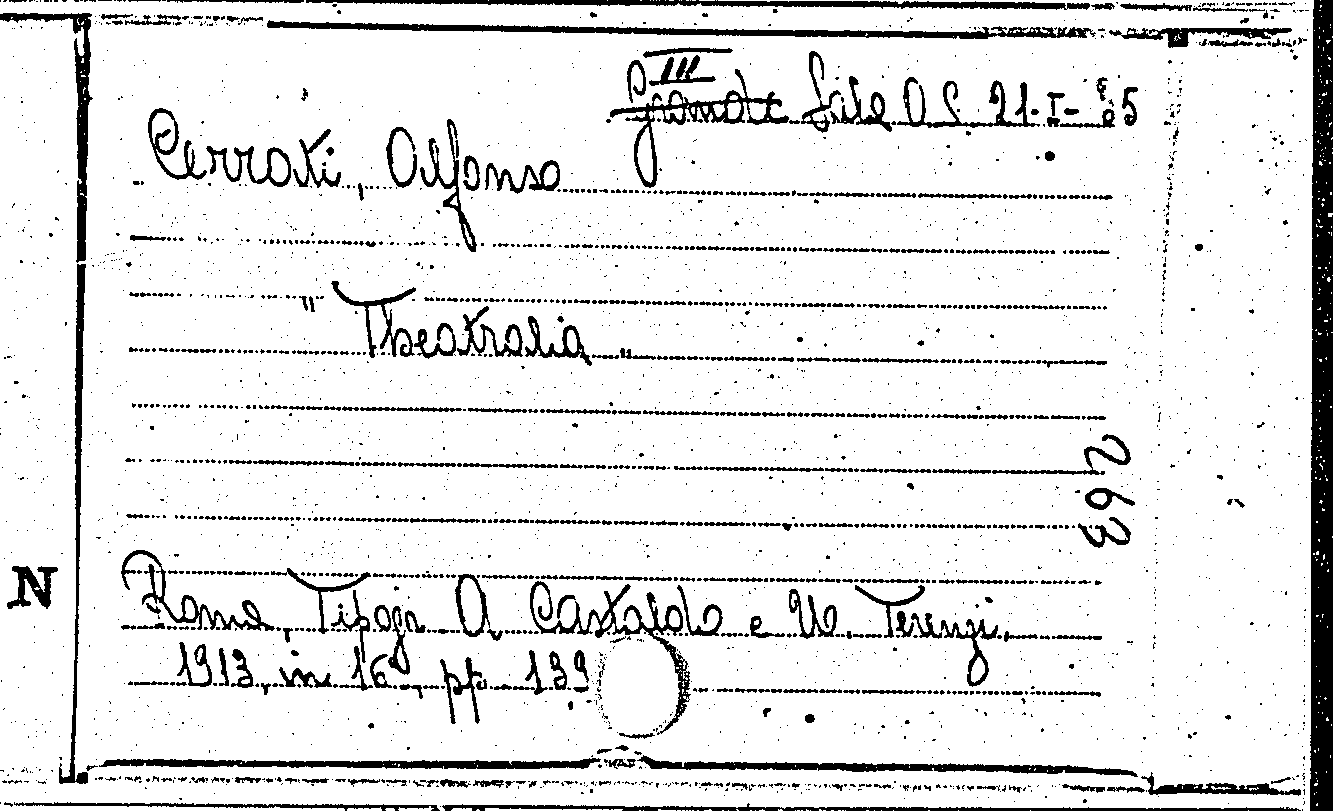 III
Sala O S. 21-I-35
Cerrati, Alfonso
"Theatralia"
263
N
Roma, Tipogr A Castaldo e U. Terenzi,
1913, in 16, pp 139